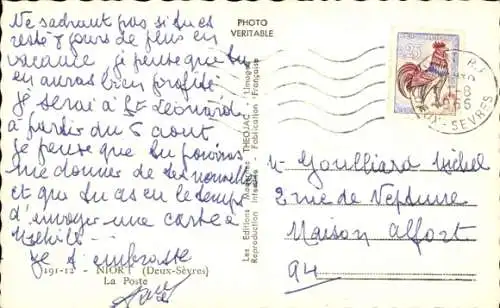 Ne sachant pas si tu es
resté 8 jours de plus en
vacance je pense que tu
en auras bien profité
je serai à St Léonard
à partir du 5 aout
je pense que tu pourras
me donner de tes nouvelles
et que tu as eu le temps
d'envoyer une carte à
je t'embrasse
191-12 - NIORT (Deux-Sèvres)
La Poste
PHOTO
VERITABLE
Les Editions Modernes THEOJAC - Limoges
Reproduction Interdite - Fabrication Française
DEUX-SEVRES
Mr Goulliard Michel
2 rue de Neptune
Maison Alfort
94